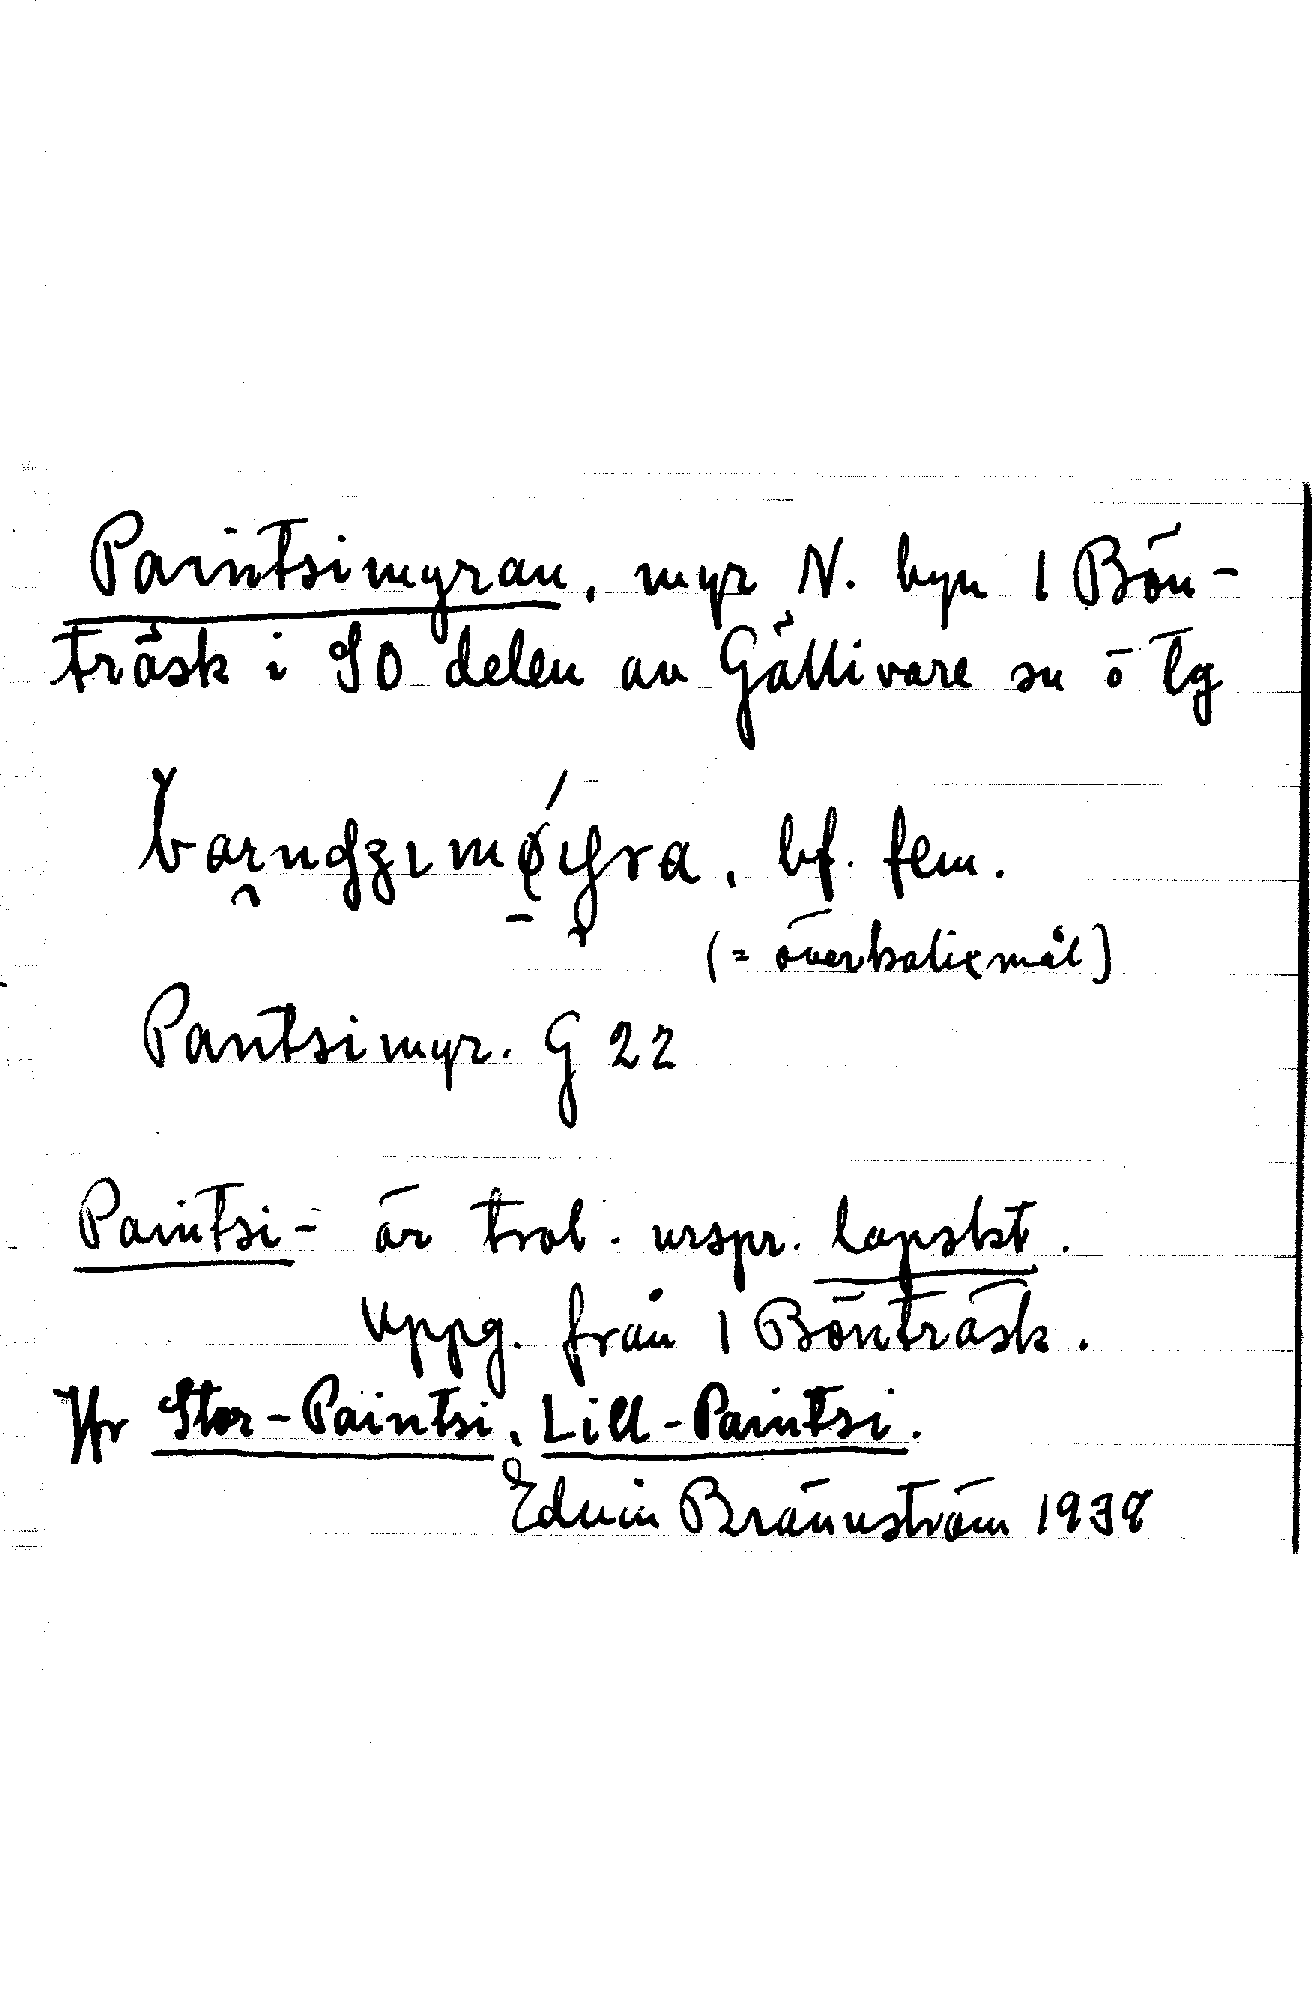 Paintsimyran, myr N. byn 1 Bön-
träsk i SO delen av Gällivare sn ö lg
bf. fem.
(= överkalixmål)
Pantsimyr. G 22
Paintsi- är trol. urspr. lapskt.
Uppg. från 1 Bönträsk.
Jfr Stor-Paintsi, Lill-Paintsi.
Edvin Brännström 1938